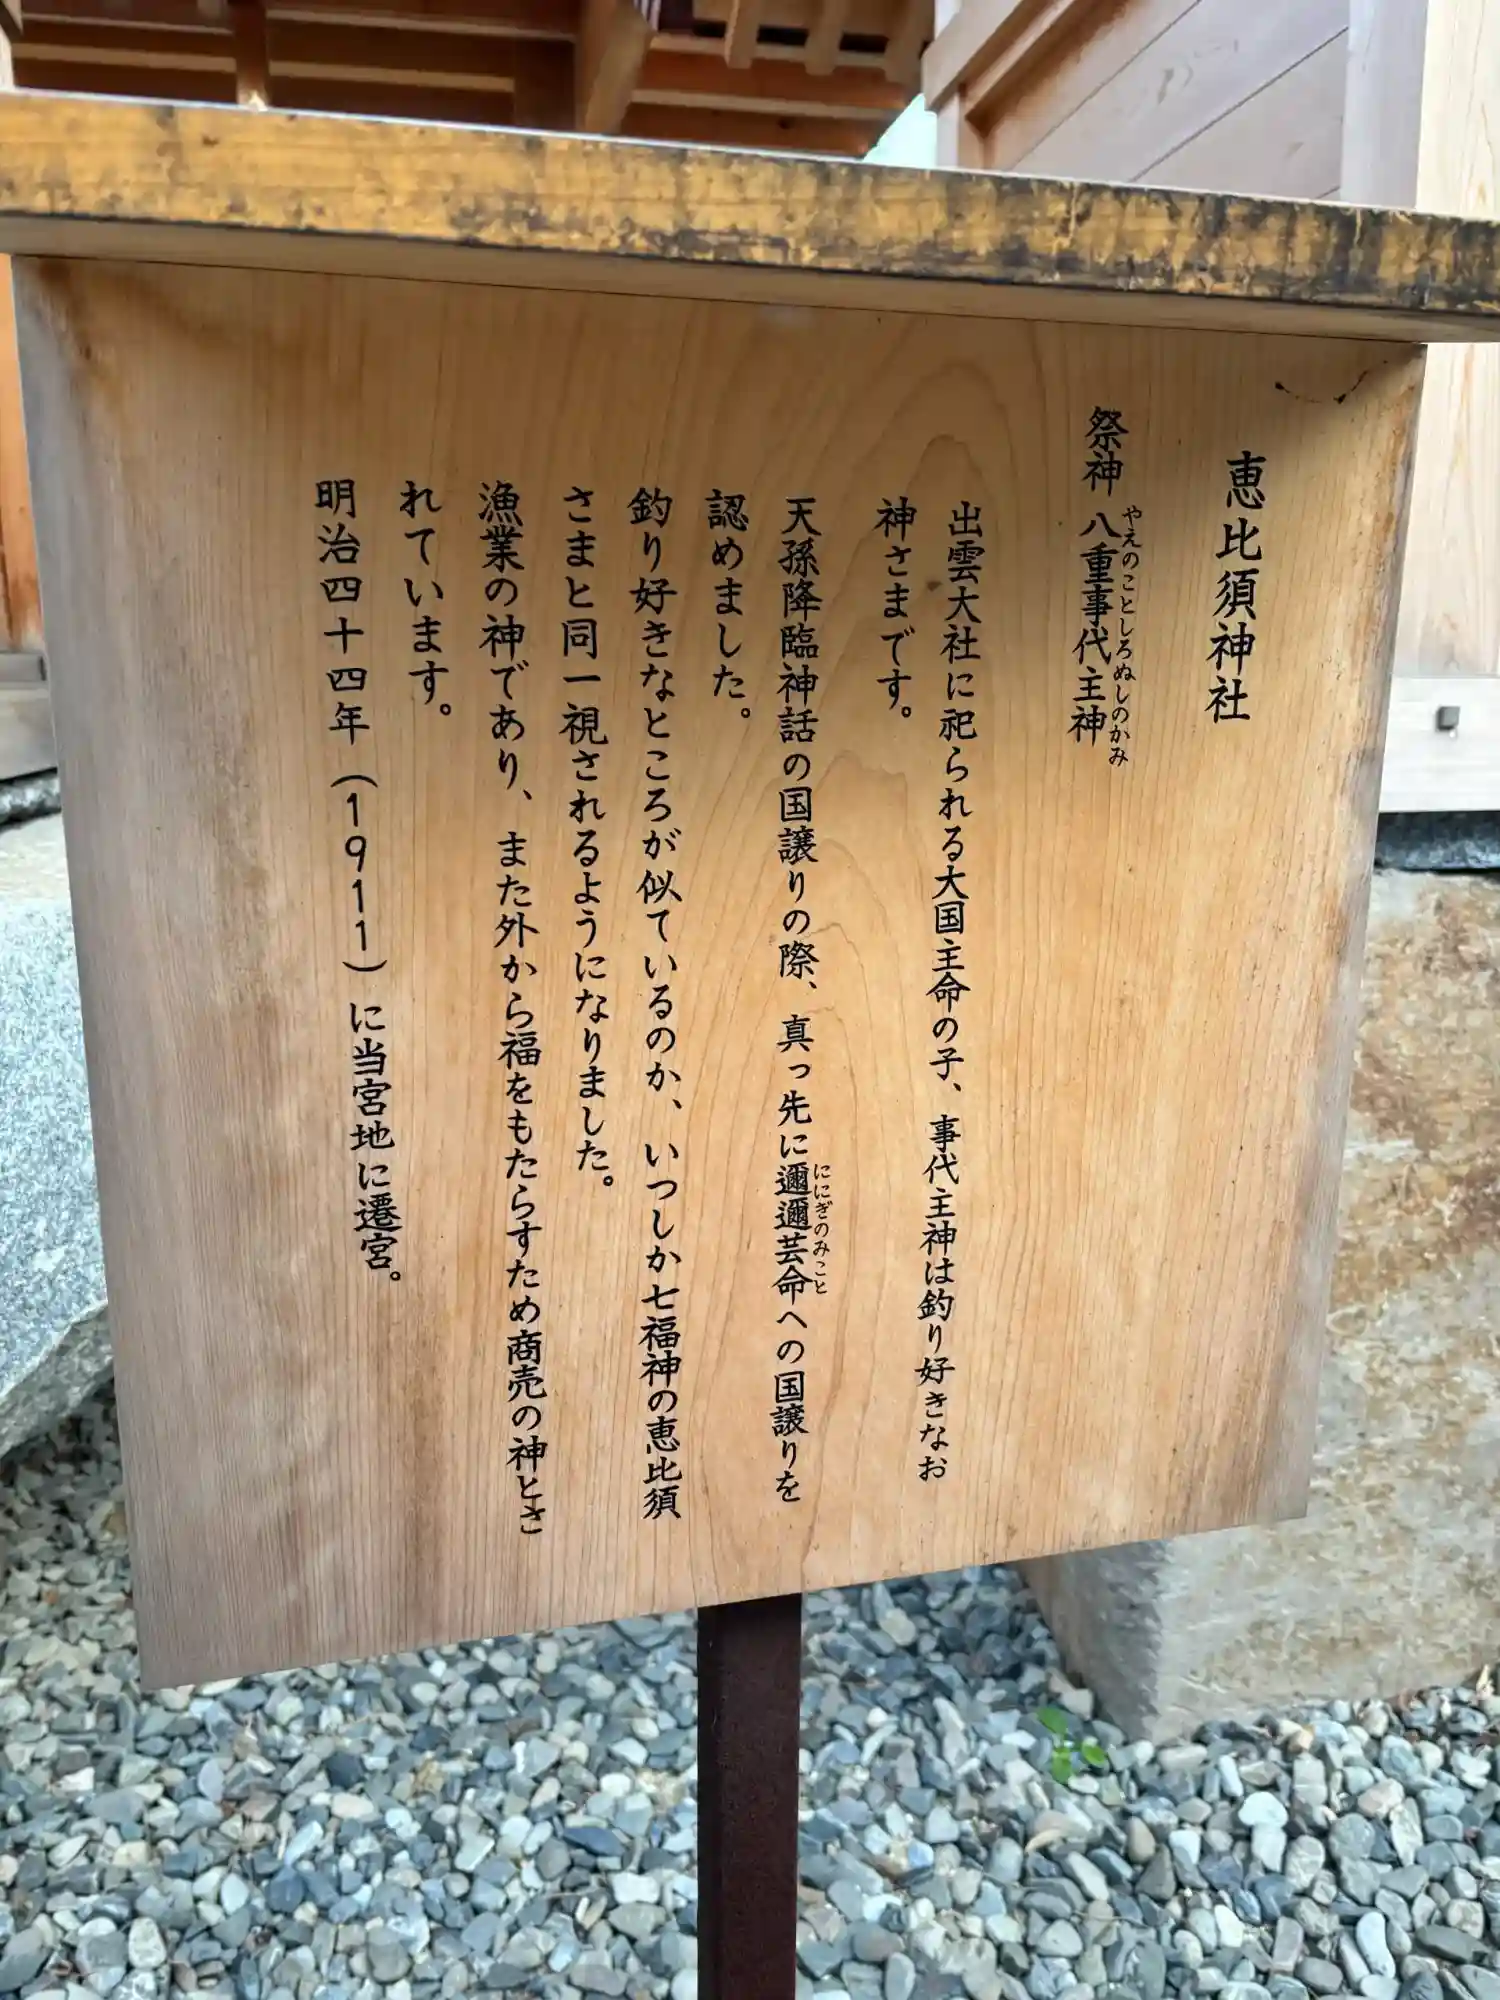 恵比須神社
祭神 八重事代主神
やえのことしろぬしのかみ
出雲大社に祀られる大国主命の子、事代主神は釣り好きなお
神さまです。
天孫降臨神話の国譲りの際、真っ先に邇邇芸命への国譲りを
ににぎのみこと
認めました。
釣り好きなところが似ているのか、いつしか七福神の恵比須
さまと同一視されるようになりました。
漁業の神であり、また外から福をもたらすため商売の神とさ
れています。
明治四十四年(1911)に当宮地に遷宮。